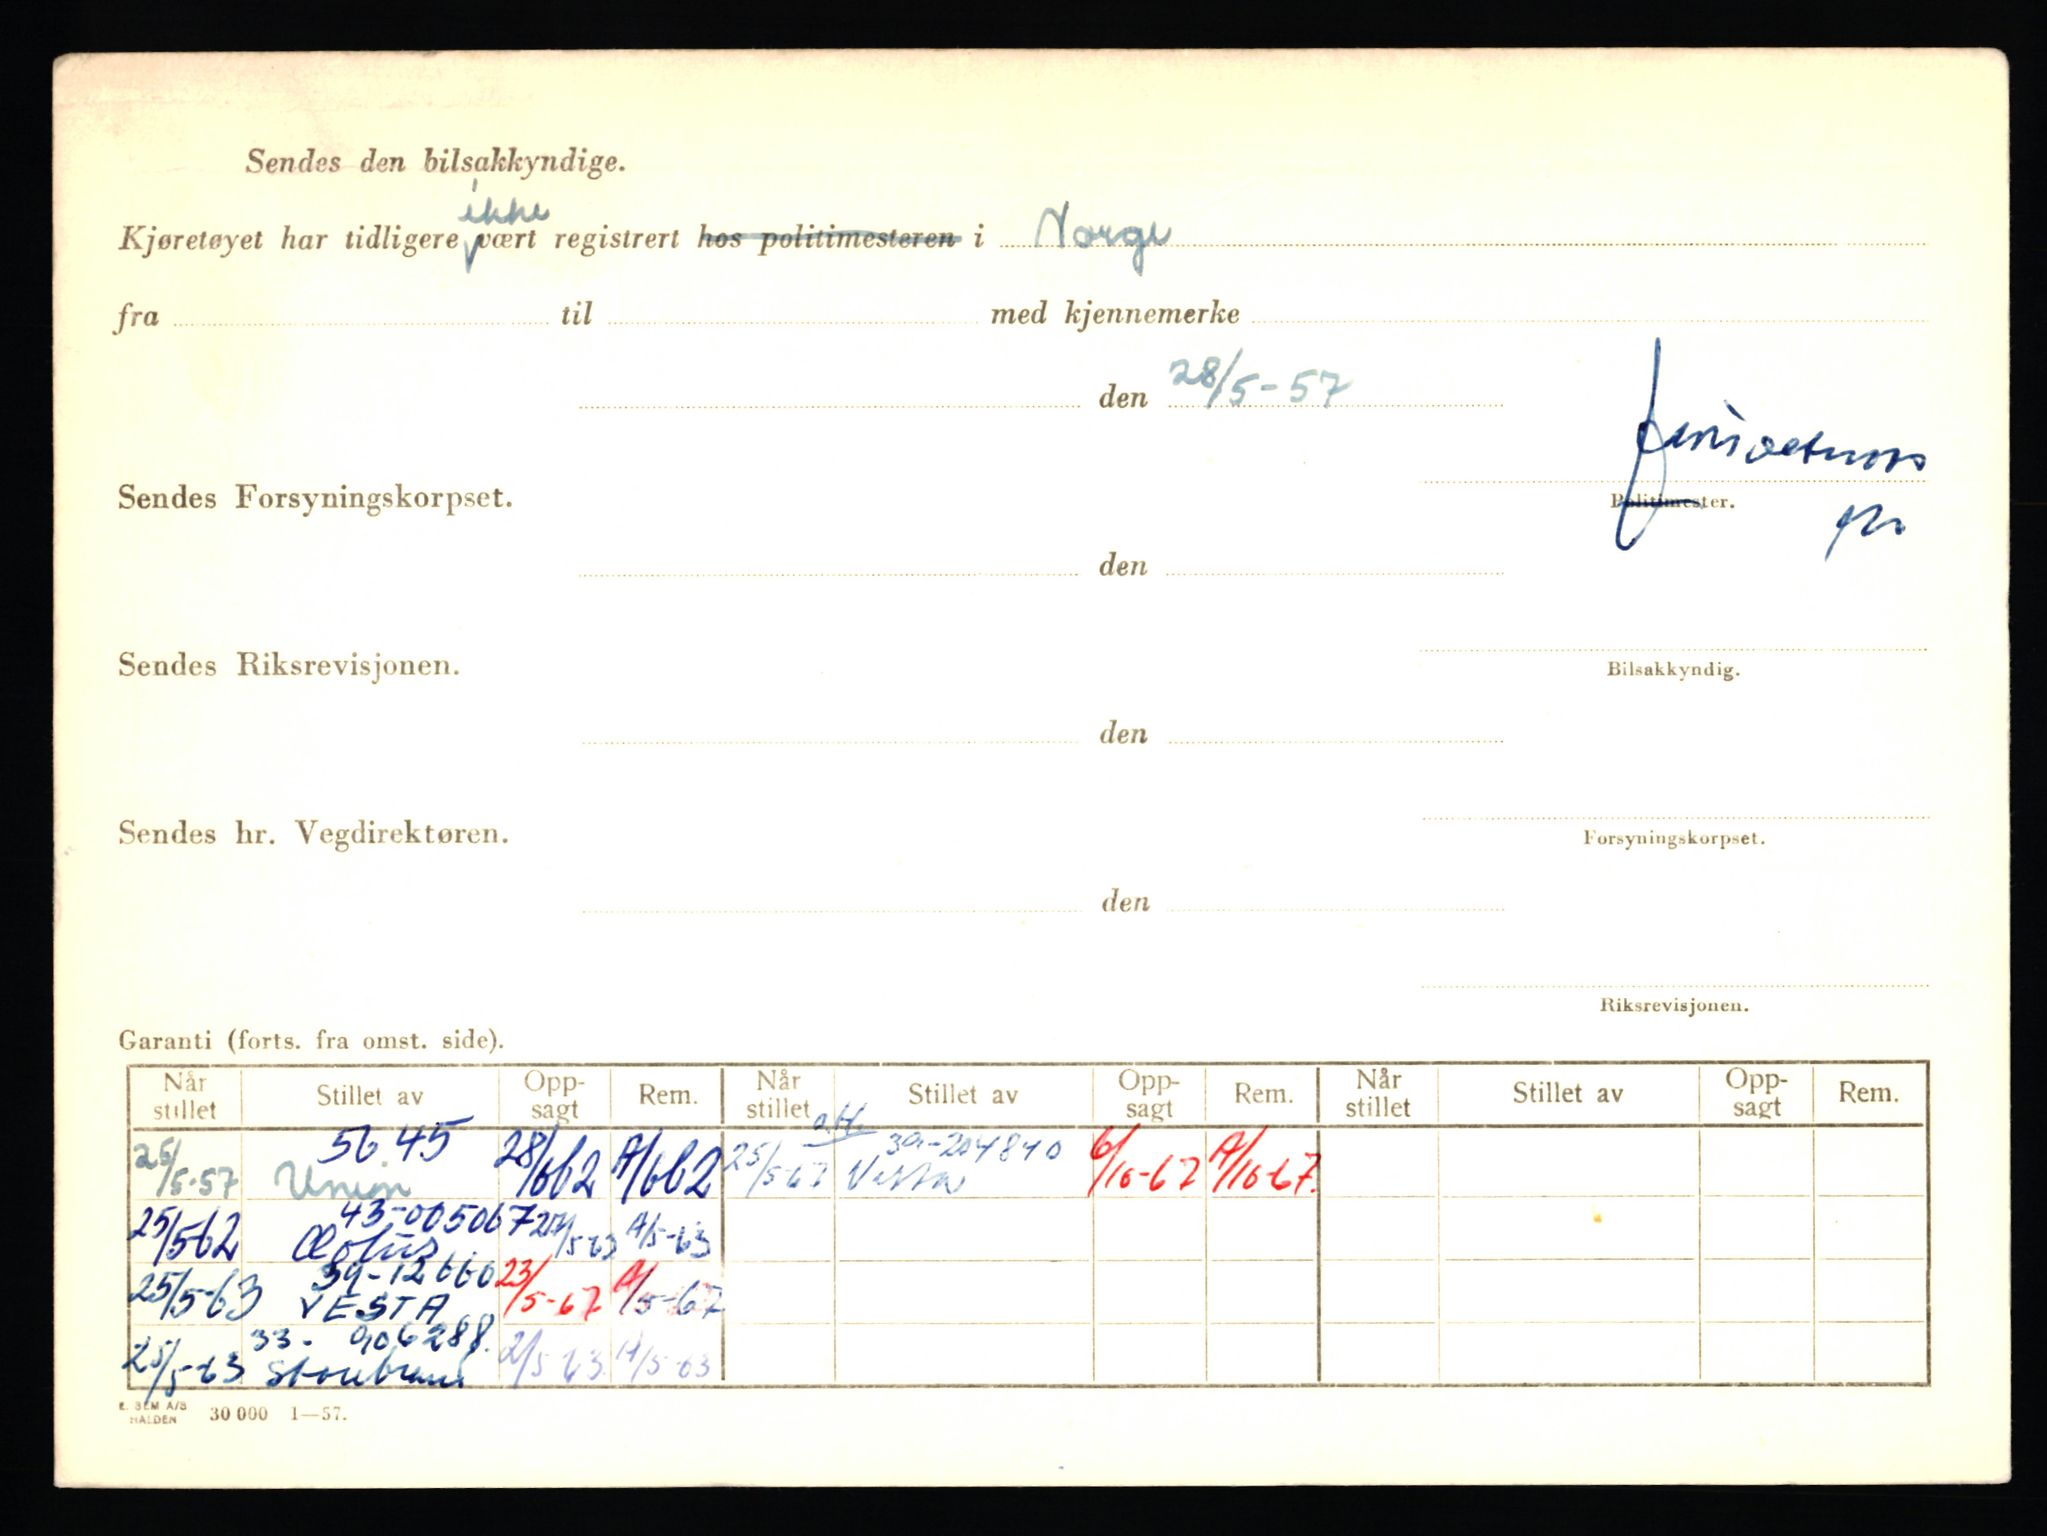 Sendes den bilsakkyndige.
Kjøretøyet har tidligere ikke vært registrert hos politimesteren i Norge
fra til med kjennemerke
den 28/5-57
Sendes Forsyningskorpset.
Politimester.
den
Sendes Riksrevisjonen.
Bilsakkyndig.
den
Sendes hr. Vegdirektøren.
Forsyningskorpset.
den
Riksrevisjonen.
Garanti (forts. fra omst. side).
Når stillet Stillet av Oppsagt Rem. Når stillet Stillet av Oppsagt Rem. Når stillet Stillet av Oppsagt Rem.
25/5-57 5645 Union 28/662 A/662 25/5-67 39-204840 Vesta 6/10-67 A/10-67.
25/562 43-005067 Æolus 5-63 A/5-63
25/5-63 39-12660 VESTA 23/5-67 A/5-67
25/5-63 33-906288. Storebrand 2/5-63. A/5-63
E. SEM A/S HALDEN 30 000 1—57.